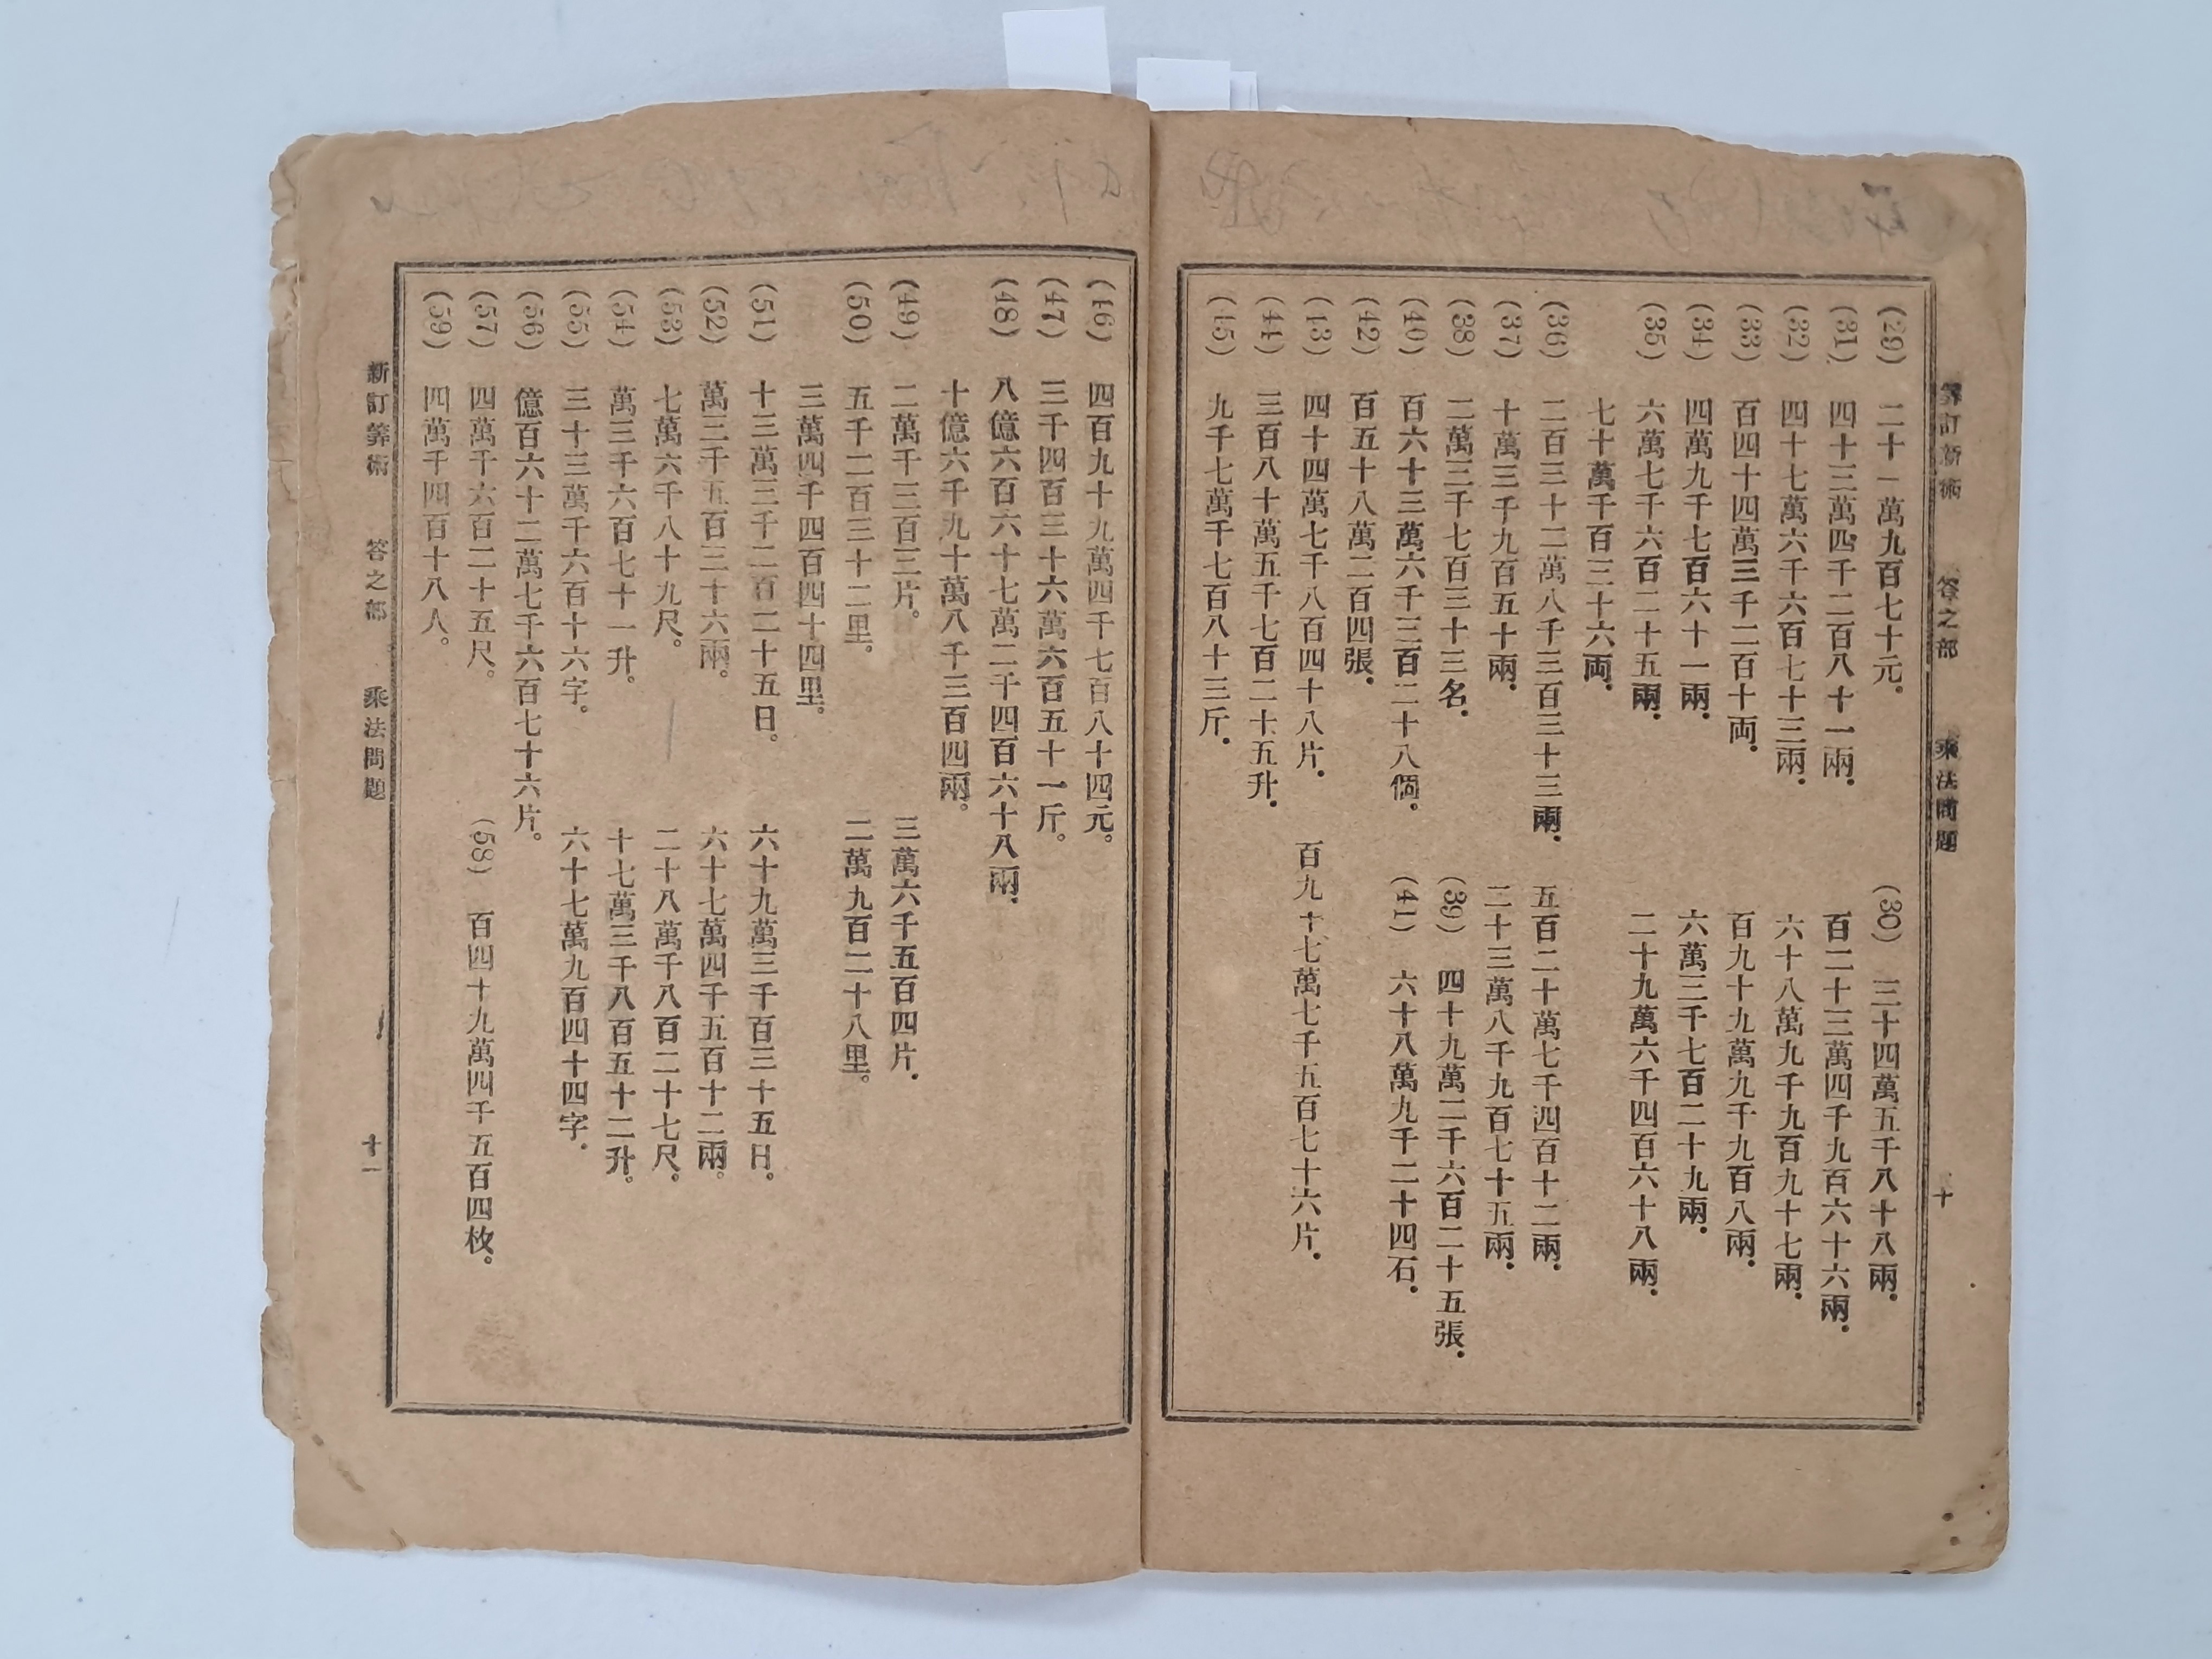 筭訂新術　答之部　乘法問題　十
(29) 二十一萬九百七十元.　(30) 三十四萬五千八十八兩.
(31) 四十三萬四千二百八十一兩.　百二十三萬四千九百六十六兩.
(32) 四十七萬六千六百七十三兩.　六十八萬九千九百九十七兩.
(33) 百四十四萬三千二百十両.　百九十九萬九千九百八兩.
(34) 四萬九千七百六十一兩.　六萬三千七百二十九兩.
(35) 六萬七千六百二十五兩.　二十九萬六千四百六十八兩.
七十萬千百二十六両.
(36) 二百三十二萬八千三百三十三兩.　五百二十萬七千四百十二兩.
(37) 十萬三千九百五十兩.　二十三萬八千九百七十五兩.
(38) 二萬三千七百三十三名.　(39) 四十九萬二千六百二十五張.
(40) 百六十三萬六千三百二十八個.　(41) 六十八萬九千二十四石.
(42) 百五十八萬二百四張.
(43) 四十四萬七千八百四十八片.　百九十七萬七千五百七十六片.
(44) 三百八十萬五千七百二十五升.
(45) 九千七萬千七百八十三斤.
(46) 四百九十九萬四千七百八十四元。
(47) 三千四百三十六萬六百五十一斤。
(48) 八億六百六十七萬二千四百六十八兩.
十億六千九十萬八千三百四兩。
(49) 二萬千三百三片。　三萬六千五百四片.
(50) 五千二百三十二里。　二萬九百二十八里。
三萬四千四百四十四里。
(51) 十三萬三千二百二十五日。　六十九萬三千百三十五日.
(52) 萬三千五百三十六兩。　六十七萬四千五百十二兩。
(53) 七萬六千八十九尺。　二十八萬千八百二十七尺。
(54) 萬三千六百七十一升。　十七萬三千八百五十二升。
(55) 三十三萬千六百十六字。　六十七萬九百四十四字.
(56) 億百六十二萬七千六百七十六片。
(57) 四萬千六百二十五尺。　(58) 百四十九萬四千五百四枚。
(59) 四萬千四百十八人。
新訂筭術　答之部　乘法問題　十一